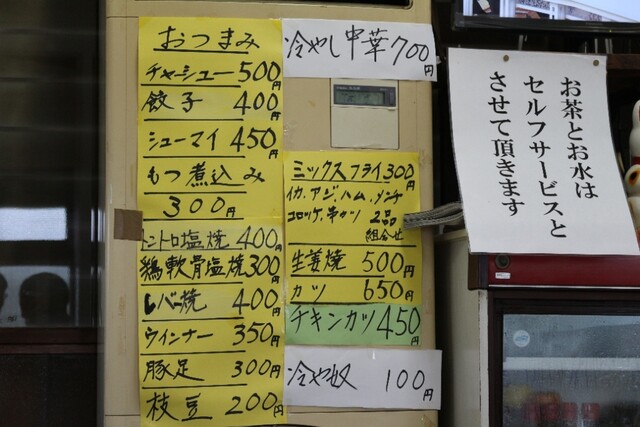 おつまみ
チャーシュー 500円
餃子 400円
シューマイ 450円
もつ煮込み
300円
トントロ塩焼 400円
鶏軟骨塩焼 300円
レバー焼 400円
ウインナー 350円
豚足 300円
枝豆 200円
冷やし中華 700円
ミックスフライ 300円
イカ.アジ.ハム.メンチ
コロッケ.串カツ 2品
組合せ
生姜焼 500円
カツ 650円
チキンカツ 450円
冷や奴 100円
お茶とお水は
セルフサービスと
させて頂きます